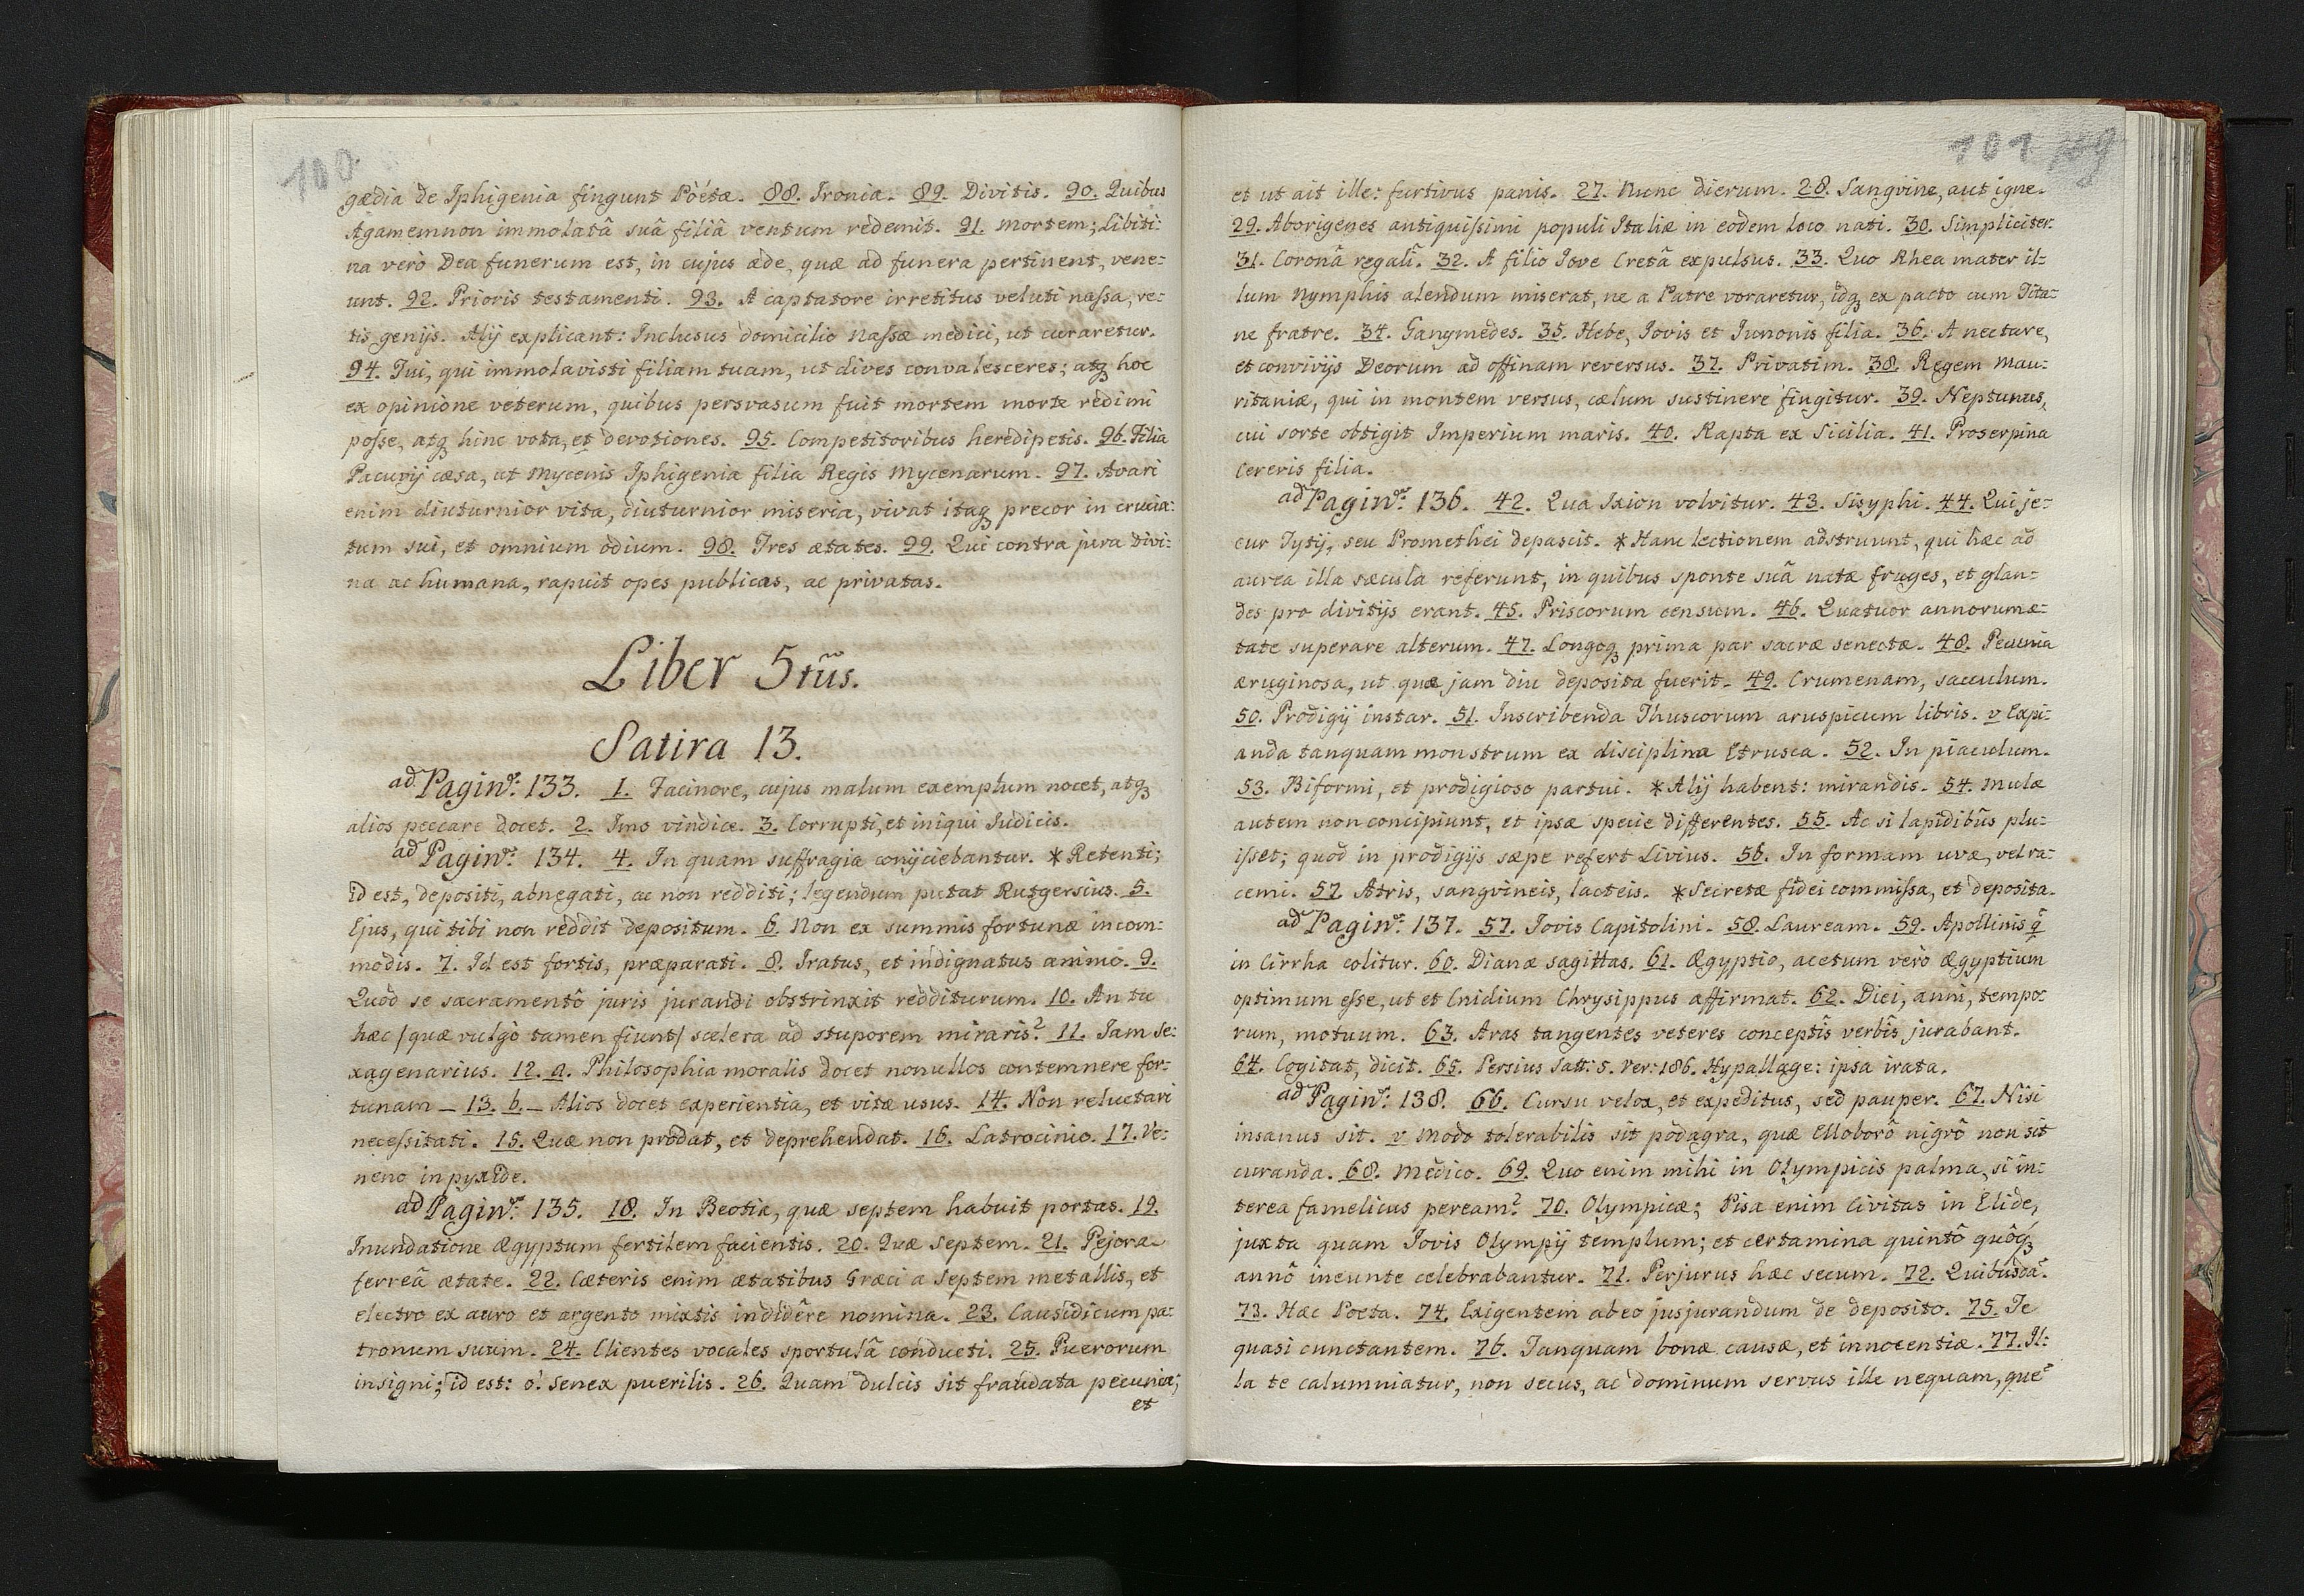 100.
gædia de Iphigenia fingunt Pöétæ. 88. Ironia. 89. Divitis. 90. Quibus
Agamemnon immolatâ suâ filiâ ventum redemit. 91. Mortem; Libiti:
na verò Dea funerum est, in cujus æde, quæ ad funera pertinent, vene:
unt. 92. Prioris testamenti. 93. A captatore irretitus veluti nassa, re:
tis genijs. Alij explicant: Inclusus domicilio Nassæ medici, ut curaretur.
94. Tui, qui immolavisti filiam tuam, ut dives convalesceres; atq hoc
ex opinione veterum, quibus persvasum fuit mortem morte redimi
posse, atq hinc vota, et devotiones. 95. Competitoribus heredipetis. 96. Filia
Pacuvij cæsa, ut Mycenis Iphigenia filia Regis Mycenarum. 97. Avari
enim diuturnior vita, diuturnior miseria, vivat itaq precor in crucia:
tum sui, et omnium odium. 98. Tres ætates. 99. Qui contra jura Divi:
na ac humana, rapuit opes publicas, ac privatas.
Liber 5tũs.
Satira 13.
ad Pagin: 133. 1. Facinore, cujus malum exemplum nocet, atq
alios peccare docet. 2. Imo vindice. 3. Corrupti, et iniqui Iudicis.
ad Pagin: 134. 4. In quam suffragia conijciebantur. * Retenti;
id est, depositi, abnegati, ac non redditi; legendum putat Rutgersius. 5.
Ejus, qui tibi non reddit depositum. 6. Non ex summis fortunæ incom:
modis. 7. Id est fortis, præparati. 8. Iratus, et indignatus animo. 9.
Quòd se sacramentô juris jurandi obstrinxit redditurum. 10. An tu
hæc /quæ vulgò tamen fiunt/ scelera ad stuporem miraris? 11. Jam se:
xagenarius. 12. a. Philosophia moralis docet nonullos contemnere for:
tunam – 13. b. – Alios docet experientia, et vitæ usus. 14. Non reluctari
necessitati. 15. Quæ non prodat, et deprehendat. 16. Latrocinio. 17. Ve:
neno in pyxide.
ad Pagin: 135. 18. In Beotia, quæ septem habuit portas. 19.
Inundatione Ægyptum fertilem facientis. 20. Quæ Septem. 21. Pejora
ferreâ ætate. 22. Cæteris enim ætatibus Græci a septem metallis, et
electro ex auro et argento mixtis indidêre nomina. 23. Causidicum pa:
tronum suum. 24. Clientes vocales sportulâ conducti. 25. Puerorum
insigni; id est: o! senex puerilis. 26. Quam dulcis sit fraudata pecunia;
et
101
et ut ait ille: furtivus panis. 27. Nunc dierum. 28. Sangvine, aut igne.
29. Aborigenes antiquissimi populi Italiæ in eodem loco nati. 30. Simpliciter.
31. Coronâ regali. 32. A filio Jove Cretâ expulsus. 33. Quo Rhea mater il:
lum Nymphis alendum miserat, ne a Patre voraretur, idq ex pacto cum Tita:
ne fratre. 34. Ganymedes. 35. Hebe, Jovis et Junonis filia. 36. A nectare,
et convivijs Deorum ad offinam reversus. 37. Privatim. 38. Regem Mau:
ritaniæ, qui in montem versus, cælum sustinere fingitur. 39. Neptunus,
cui sorte obtigit Imperium maris. 40. Rapta ex Sicilia. 41. Proserpina
Cereris filia.
ad Pagin: 136. 42. Qua Ixion volvitur. 43. Sisyphi. 44. Qui je:
cur Tytij, seu Promethei depascit. * Hanc lectionem adstruunt, qui hæc ad
aurea illa sæcula referunt, in quibus sponte suâ natæ fruges, et glan:
des pro divitijs erant. 45. Priscorum censum. 46. Quatuor annorum æ:
tate superare alterum. 47. Longoq prima par sacræ senectæ. 48. Pecunia
æruginosa, ut quæ jam diu deposita fuerit. 49. Crumenam, sacculum.
50. Prodigij instar. 51. Inscribenda Thuscorum aruspicum libris. v Expi:
anda tanquam monstrum ex disciplina Etrusca. 52. In piaculum.
53. Biformi, et prodigioso partui. * Alij habent: mirandis. 54. Mulæ
autem non concipiunt, et ipsæ specie differentes. 55. Ac si lapidibûs plu:
isset; quod in prodigijs sæpe refert Livius. 56. In formam uvæ, vel ra:
cemi. 57. Atris, sangvineis, lacteis. * Secretæ fidei commissa, et deposita.
ad Pagin: 137. 57. Jovis Capitolini. 58. Lauream. 59. Apollinis q̃
in Cirrha colitur. 60. Dianæ sagittas. 61. Ægyptio, acetum verò Ægyptium
optimum esse, ut et Cnidium Chrysippus affirmat. 62. Diei, anni, tempo:
rum, motuum. 63. Aras tangentes veteres conceptîs verbîs jurabant.
64. Cogitat, dicit. 65. Persius Satt: 5. Ver: 186. Hypallage: ipsa irata.
ad Pagin: 138. 66. Cursu velox, et expeditus, sed pauper. 67. Nisi
insanus sit. v Modo tolerabilis sit podagra, quæ Elloborô nigrô non sit
curanda. 68. Medico. 69. Quo enim mihi in Olympicis palma, si in:
terea famelicus peream? 70. Olympicæ; Pisa enim Civitas in Elide,
juxta quam Jovis Olympij templum; et certamina quintô quôq
annô ineunte celebrabantur. 71. Perjurus hæc secum. 72. Quibusdã.
73. Hæc Poeta. 74. Exigentem ab eo jusjurandum de deposito. 75. Te
quasi cunctantem. 76. Tanquam bonæ causæ, et innocentiæ. 77. Il:
la te calumniatur, non secus, ac dominum servus ille nequam, quẽ